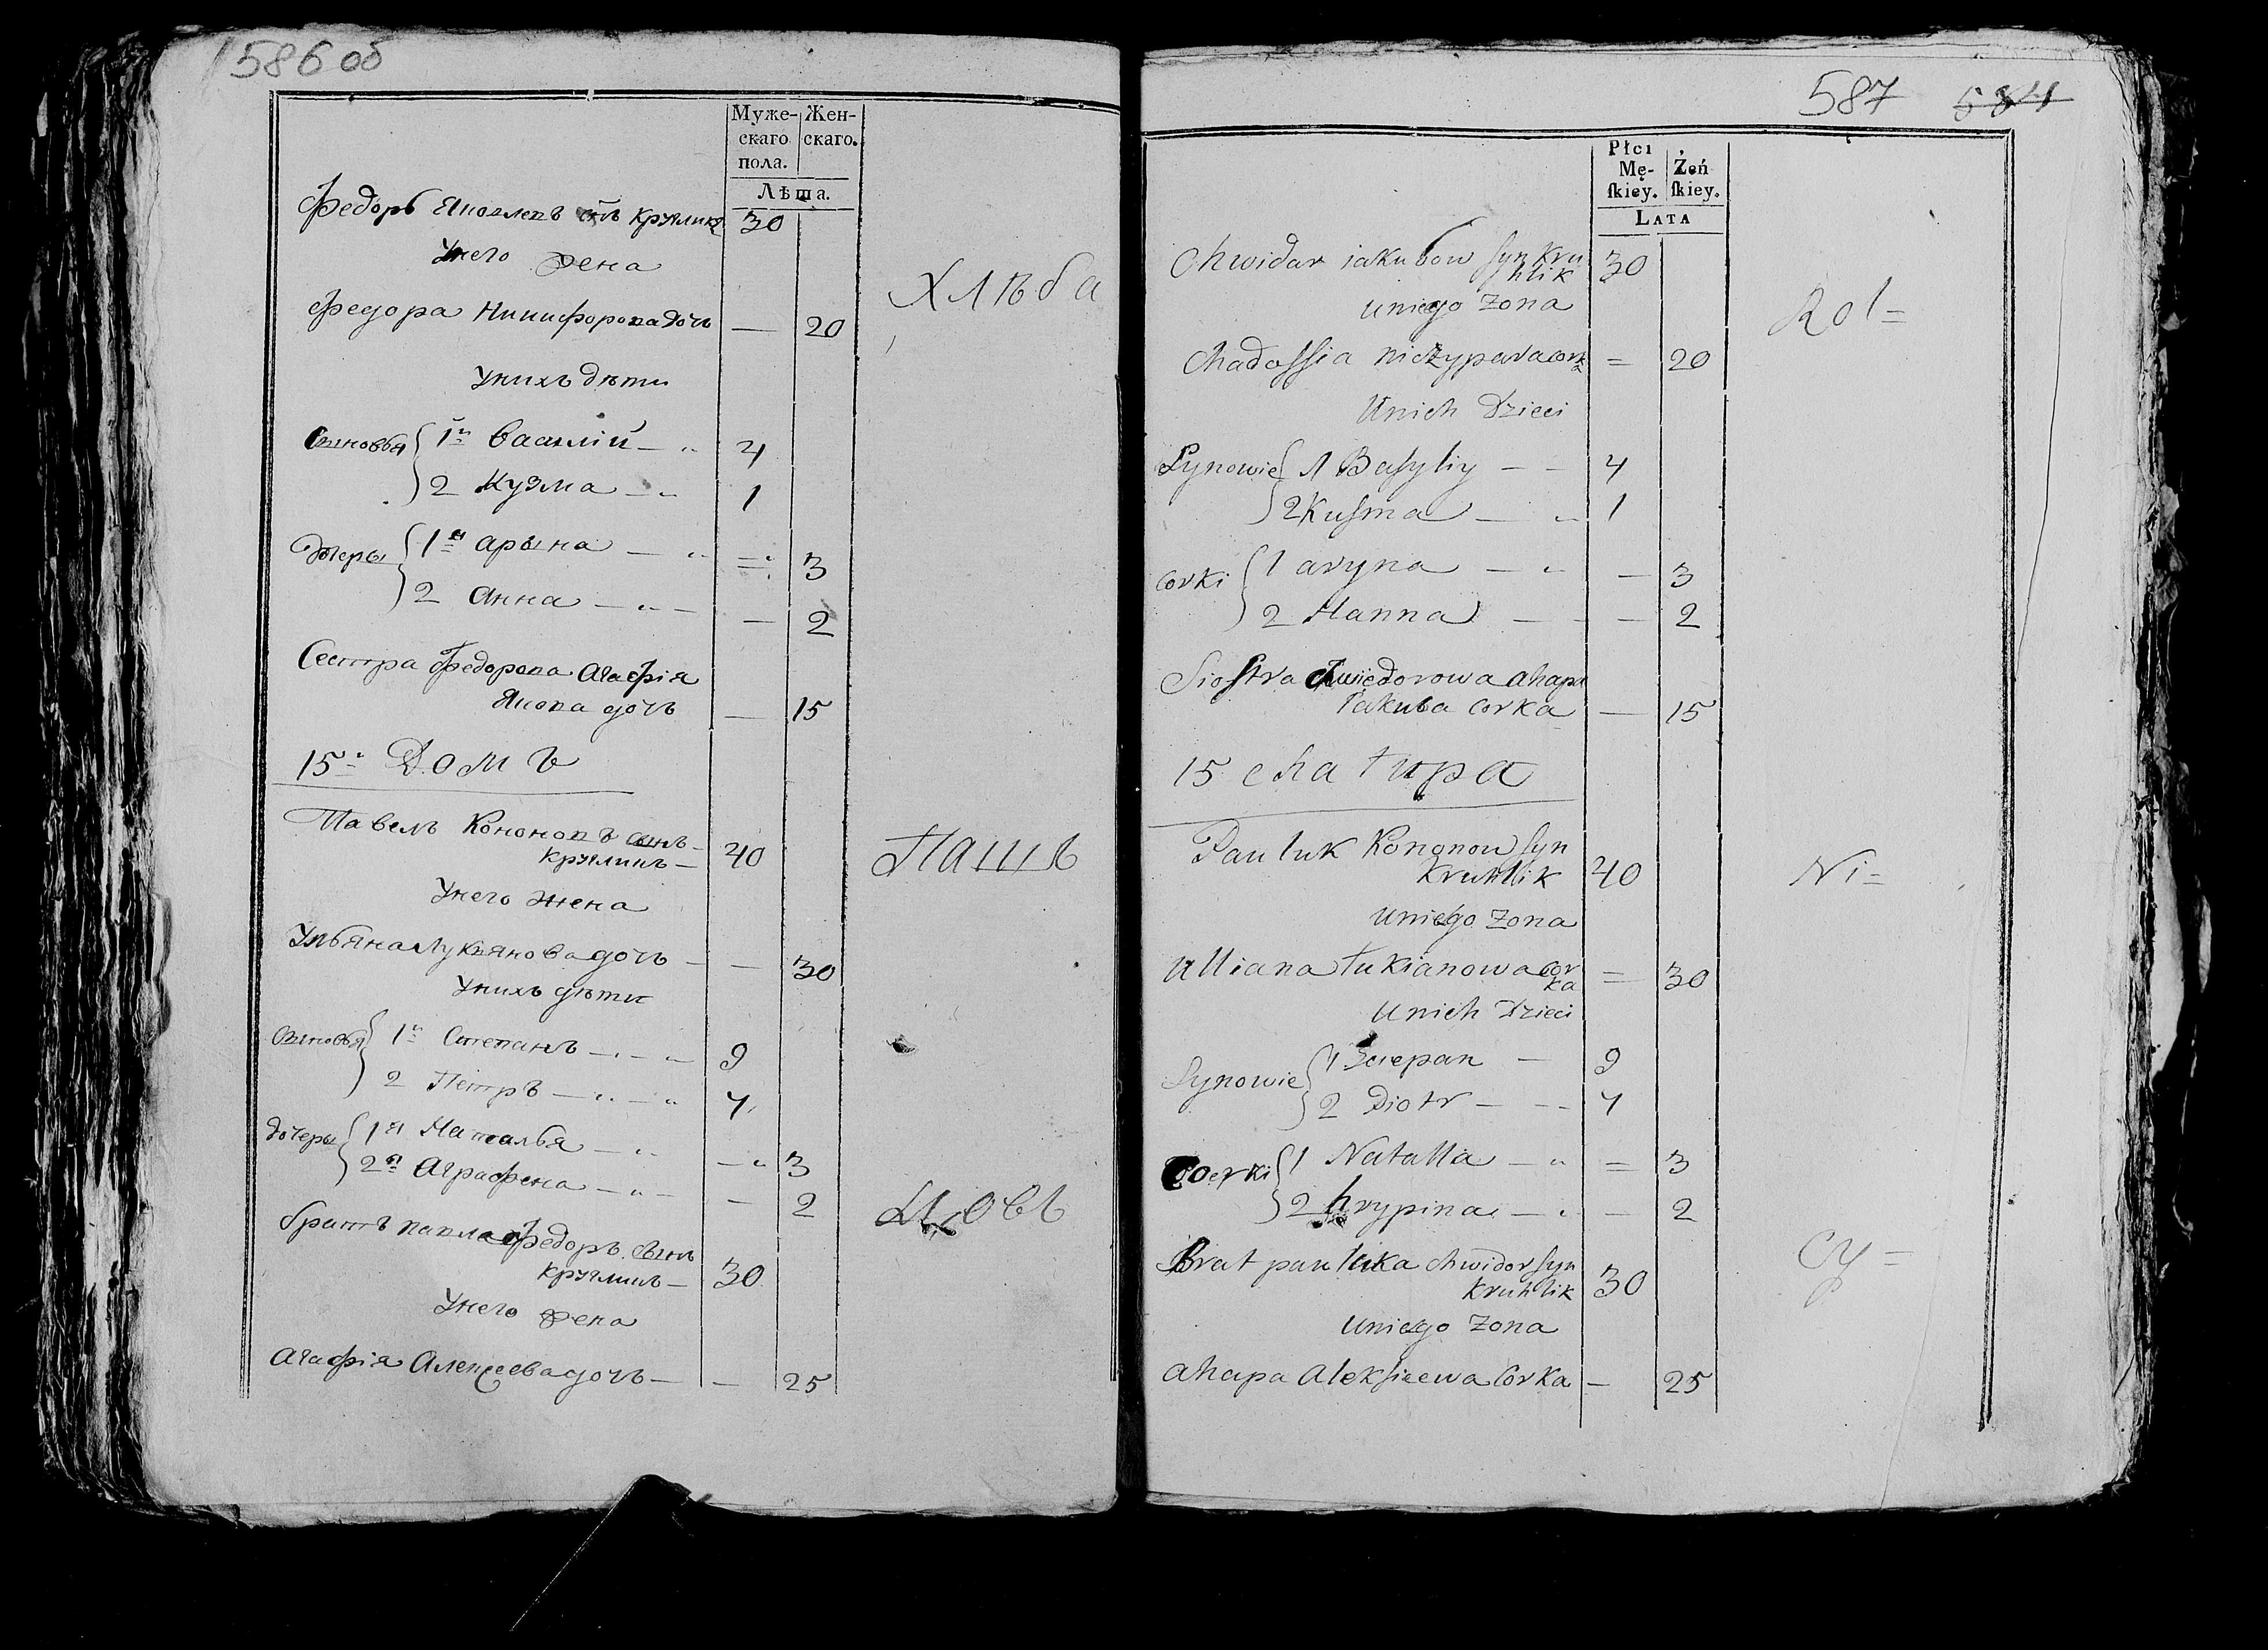 586 об
Муже- Жен-
скаго скаго.
пола.
Лѣта.
Федоръ Яковлевъ сн̃ъ Кругликъ 30
У него жена
Федора Никифорова дочь — 20
Хлѣба
У нихъ дѣти
Сыновья 1й Василій — 4
2 Кузма — 1
Дочеры 1я Арына — 3
2 Анна — 2
Сестра Федорова Агафія
Якова дочь — 15
15й Домъ
Павелъ Кононовъ сынъ
Кругликъ — 40
Пашь
У него жена
Ульяна Лукьянова дочь — 30
У нихъ дѣти
Сыновья 1й Степанъ — 9
2 Петръ — 4
Дочеры 1я Наталья — 3
2я Аграфена — 2
цовь
братъ Павла Федоръ сынъ
Кругликъ — 30
У него жена
Агафія Алексеева дочь — 25
587 584
Płci
Mę- Żeń
skiey. skiey.
LATA
Chwidar iakubow syn Kru
hlik 30
uniego Zona
Rol=
Chadossia niczypara cork
a = 20
Unich Dzieci
Synowie 1 Basyliy — 4
2 Kusma — 1
corki 1 aryna — 3
2 Hanna — 2
Siostra Chwiedorowa ahapa
Iakuba corka — 15
15 chatupa
Pauluk Kononow syn
Kruhlik 40
Ni=
uniego Zona
Ulliana Łukianowa cor
ka = 30
Unich Dzieci
Synowie 1 Sciepan — 9
2 Piotr — 4
Coerki 1 Natalla = 3
2 hrypina — 2
Brat pauluka chwidor syn
Kruhlik 30
cy=
uniego Zona
ahapa Aleksieewa Corka — 25